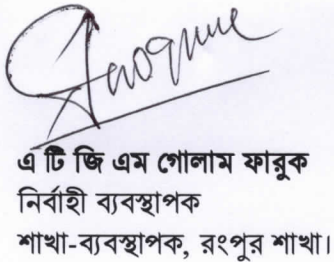 এ টি জি এম গোলাম ফারুক
নির্বাহী ব্যবস্থাপক
শাখা-ব্যবস্থাপক, রংপুর শাখা।